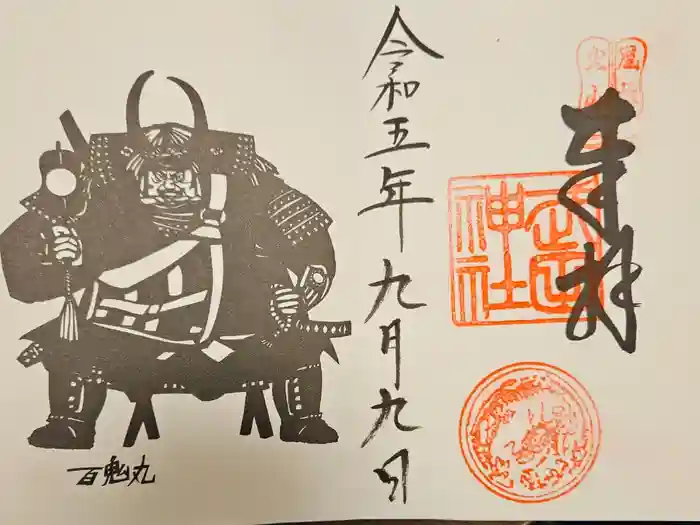 奉拝
神社
令和五年九月九日
百鬼丸